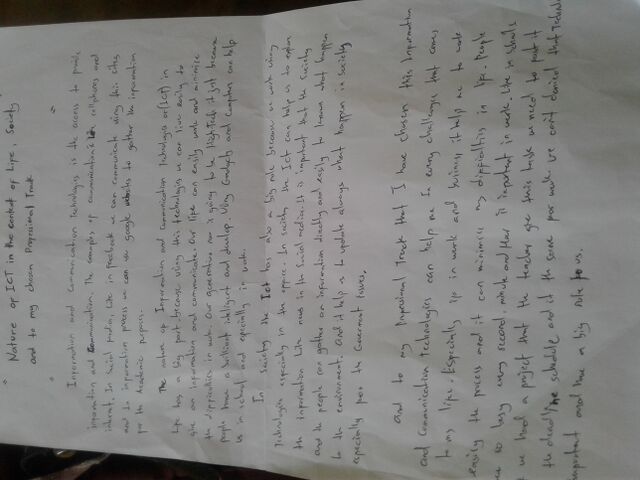 Nature of ICT in the context of Life, Society
and to my chosen Professional Track
Information and Communication technologies is the access to provide
information and Communication. The examples of communication is cellphones and
internet. In Social media, Like in Facebook we can communicate using this sites
and to information process we can use google websites to gather the information
for the Academic purposes.
The nature of Information and Communication Technologies or (ICT) in
Life has a big part because using this technologies we can live easily to
give an information and communicate. Our life can easily work and minimize
the difficulties in work. Our generation now is going to be High-Tech it just because
people have a brilliant intelligent and develop. Using Gadgets and Computers can help
us in school and especially in work.
In Society the Ict has also a big role because we work using
Technologies especially in the office. In society the Ict can help us to inform
the information Like news in the social medias. It is important that the Society
and the people can gather an information directly and easily to known what happen
to the environment. And it help us to update always what happen in society
especially for the Government issues.
and to my Professional Track that I have chosen this Information
and Communication Technologies can help me In every challenges that comes
to my life. Especially in work and business it help me to work
easily the process and it can minimize my difficulties in life. People
to busy every second, minute and Hour is important in work. Like in Schools
we had a project that the teacher give their task we need to put it
the deadline schedule and it the same for work. We can't denied that
important and have a big role to us.